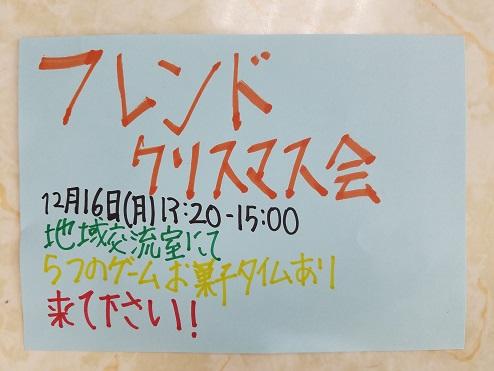 フレンド
クリスマス会
12月16日(月)13:20-15:00
地域交流室にて
5つのゲームお菓子タイムあり
来て下さい!